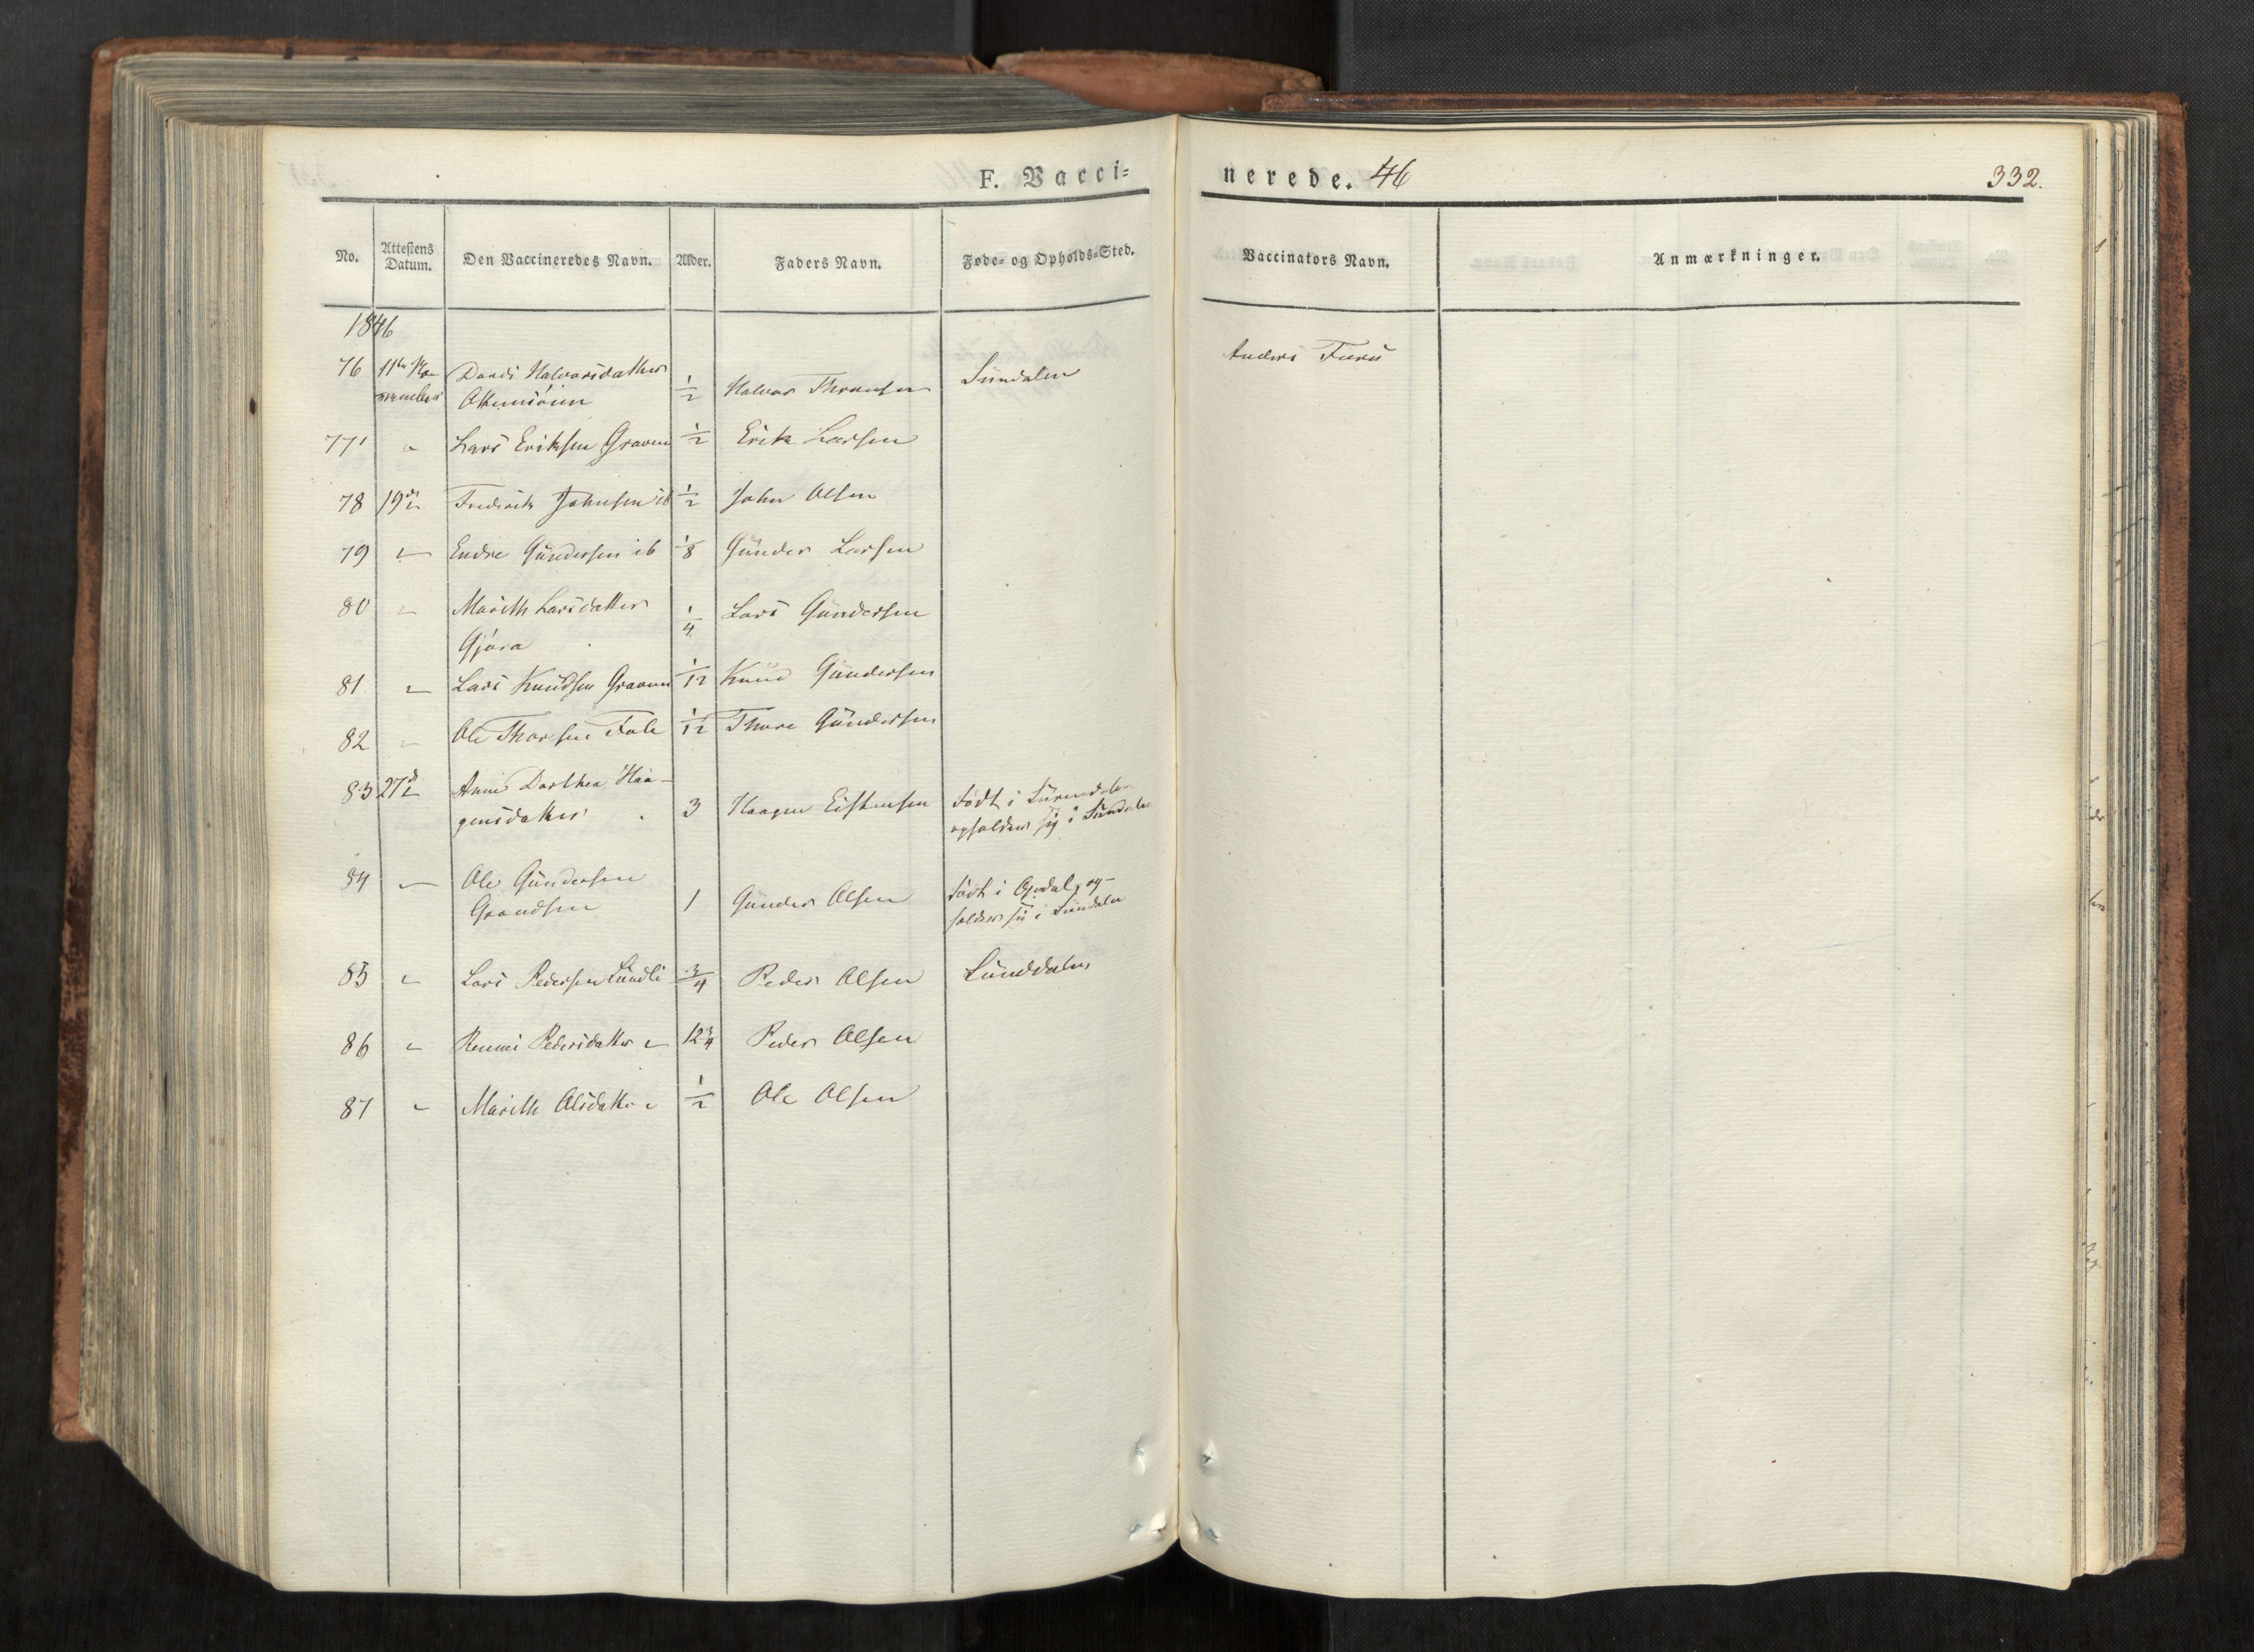 F. Vaccinerede. 46
332.
No. Attestens Datum. Den Vaccineredes Navn. Alder. Faders Navn. Føde- og Opholds-Sted. Vaccinators Navn. Anmærkninger.
1846
76 11te No- Halvorsdatter Sundalen Anders Furu
vember 1/2 Halvor
77 " Lars Eriksen Graven 1/2 Erik Larsen
78 19 di Frederik Johnsen ib 1/2 John Olsen
79 " Endre Gundersen ib 1/8 Gunder Larsen
80 " Marith Larsdatter 1/4 Lars Gundersen
Gjøra
81 " Lars Knudsen Graven 1/12 Knud Gundersen
82 " Ole Thorsen Fale 1/12 Thore Gundersen
83 27 di Anne Dorthea Haa- Født i Surendalen
gensdatter 3 Haagen Eistensen opholder sig i Sundalen
84 " Ole Gundersen Født i Opdal, op-
1 Gunder Olsen holder sig i Sundalen
85 " Lars Pedersen Lundli 3/4 Peder Olsen Sunddalen
86 " Pedersdatter " 12 3/4 Peder Olsen
87 " Marith Olsdatter " 1/2 Ole Olsen